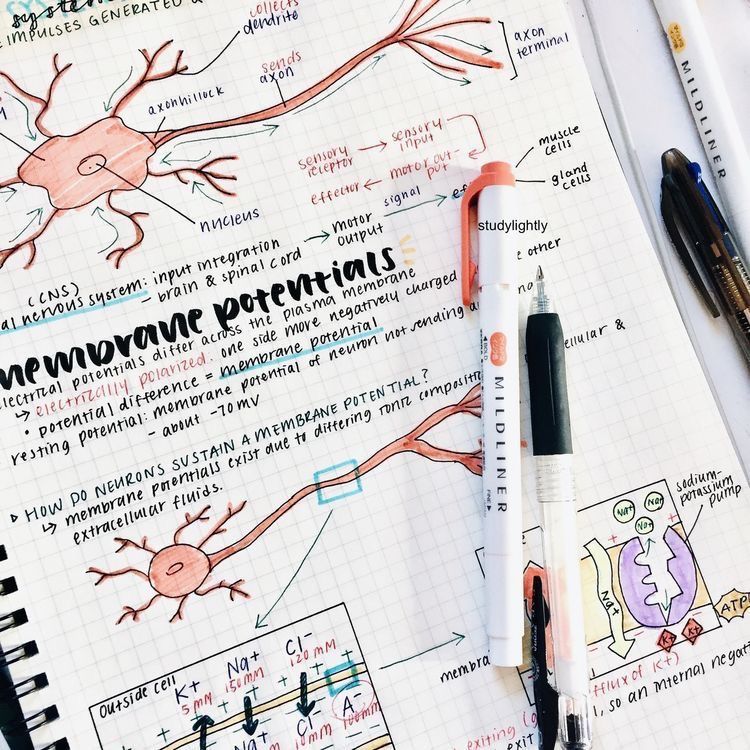 system
E IMPULSES GENERATED &
collects
dendrite
sends
axon
axon
terminal
axonhillock
nucleus
sensory
receptor → sensory
input
effector ← motor out-
put
muscle
cells
gland
cells
signal
(CNS)
al nervous system: input integration → motor
output
- brain & spinal cord
membrane potentials
electrical potentials differ across the plasma membrane
→ electrically polarized: one side more negatively charged
other
• potential difference = membrane potential
resting potential: membrane potential of neuron not sending
- about -70 mV
cellular &
▷ HOW DO NEURONS SUSTAIN A MEMBRANE POTENTIAL?
→ membrane potentials exist due to differing ionic
extracellular fluids.
studylightly
MILDLINER
BOLD
FINE
MILDLINER
outside cell
K+
5 mM
Na+
150 mM
Cl-
120 mM
Na+
Cl-
10 mM
A-
100 mM
sodium-
potassium
pump
Na+
Na+
Na+
Na+
K+
K+
ATP
membr
efflux of K+)
, so an internal negat
exiting
exit